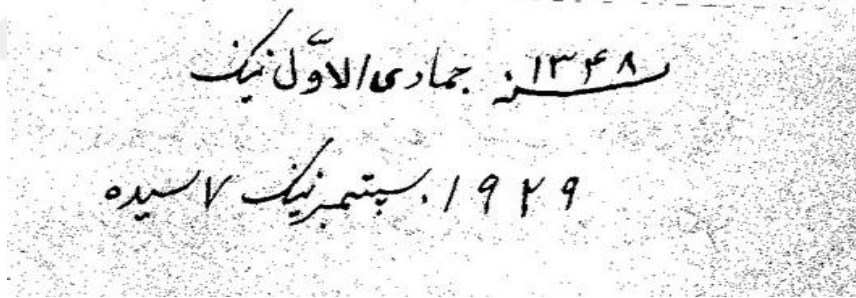 سنه ۱۳۴۸ جمادی الاوّل نیک
۱۹۲۹. سپتمبر نیک ۷ سیده